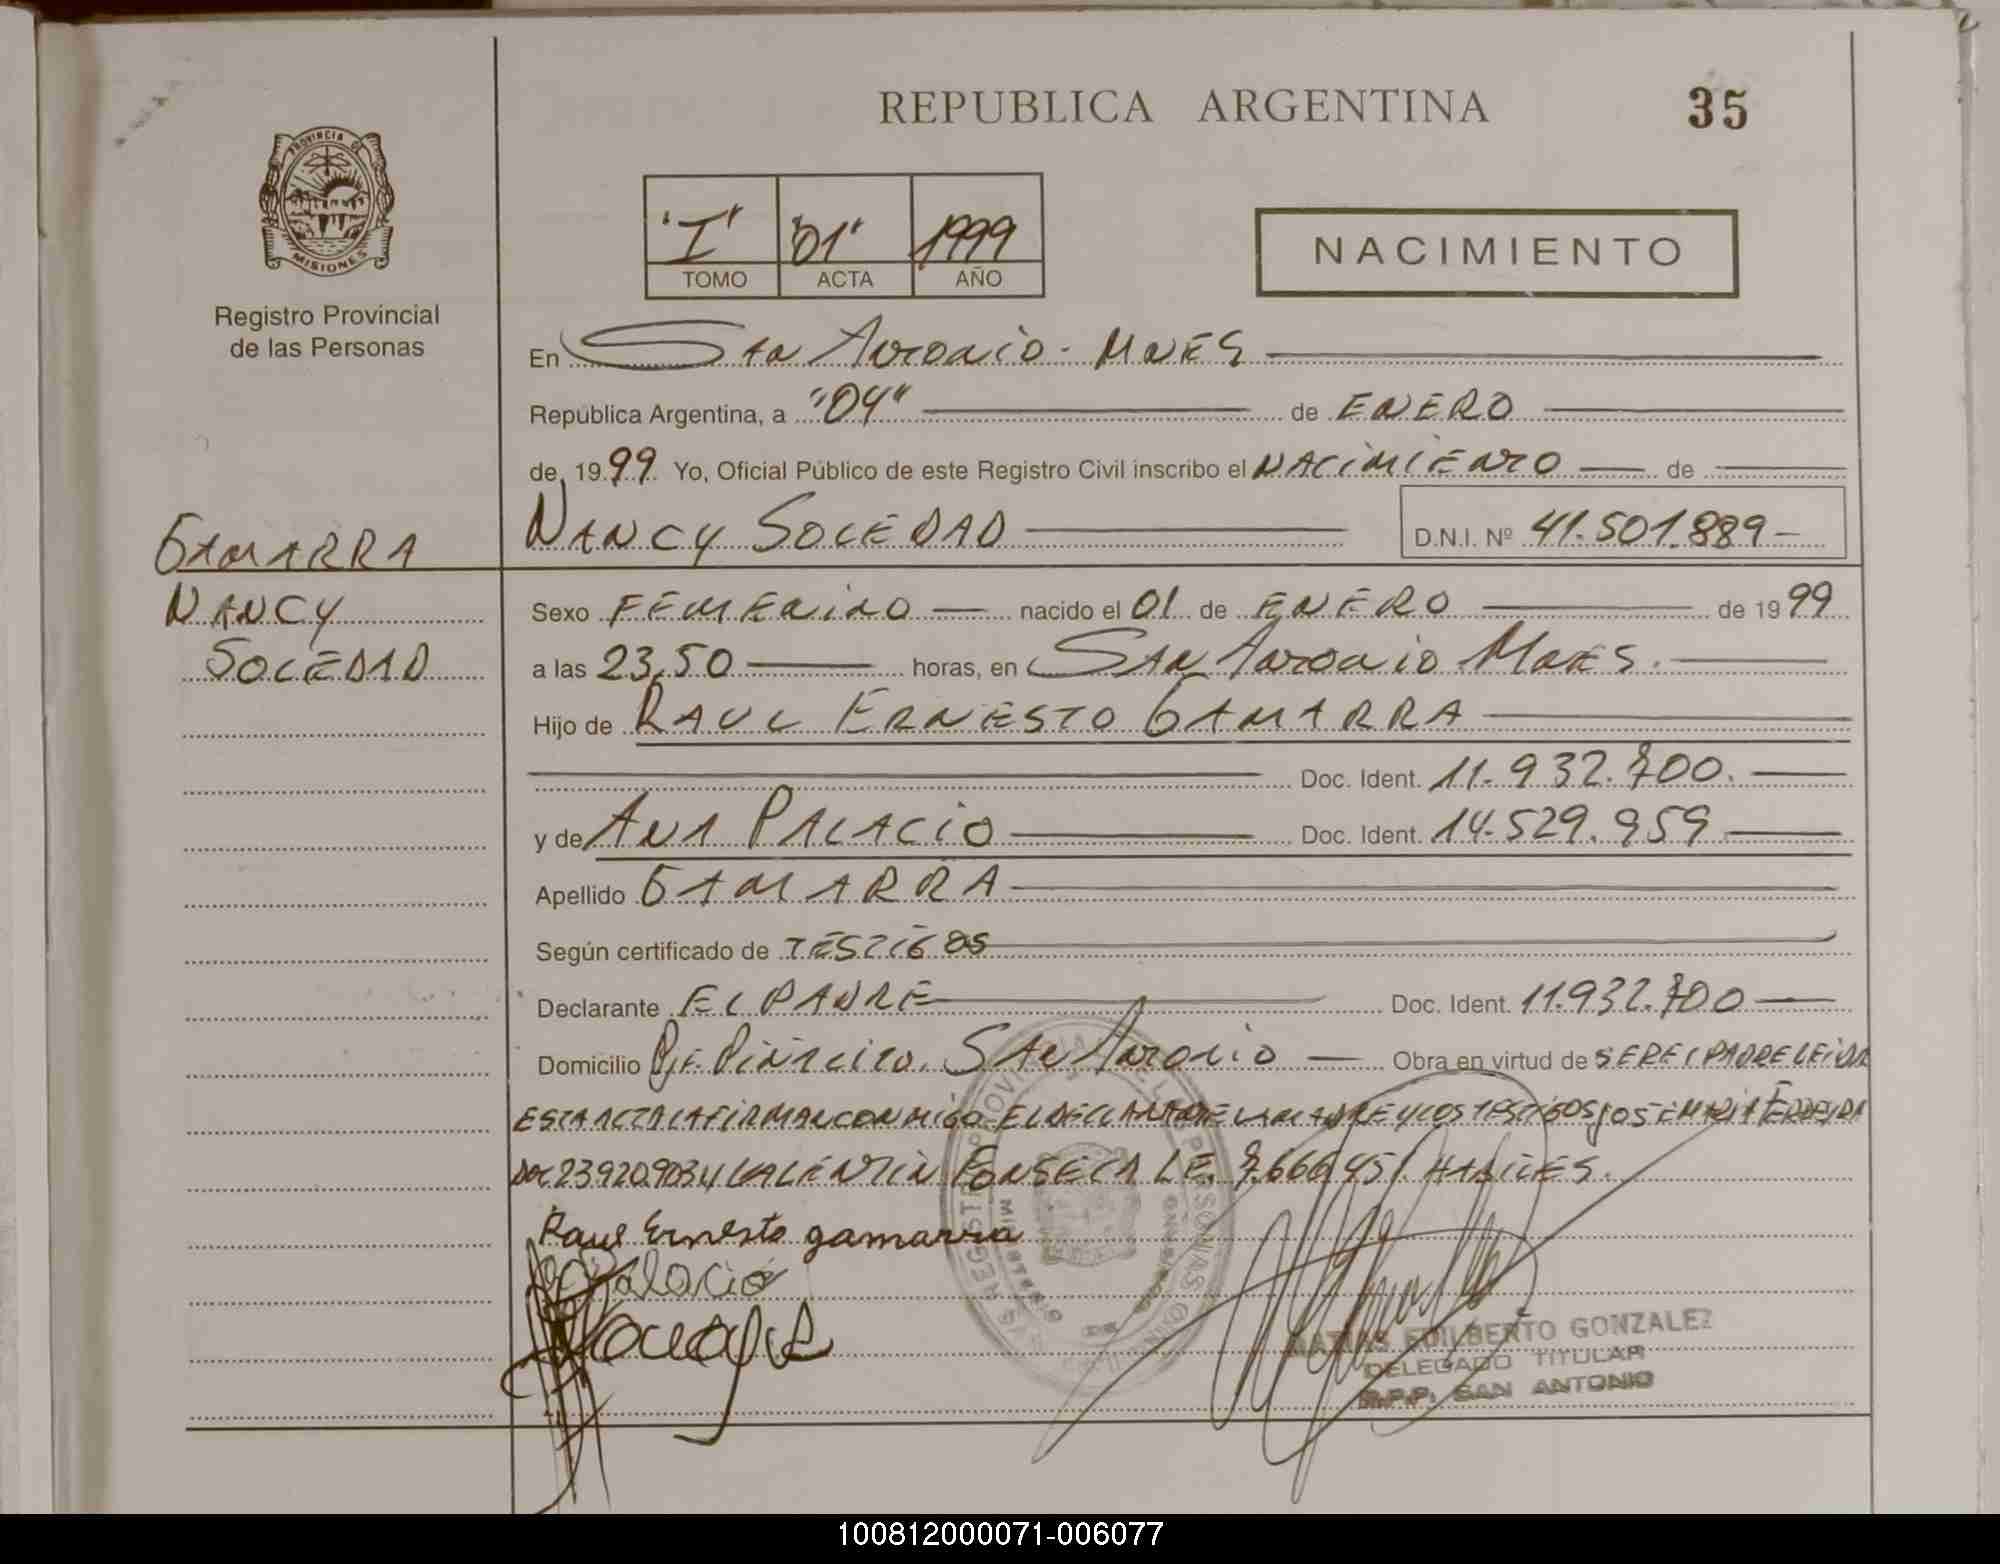 REPUBLICA ARGENTINA
35
PROVINCIA DE
MISIONES
Registro Provincial
de las Personas
"I" "01" 1999
TOMO ACTA AÑO
NACIMIENTO
En San Antonio - Mnes
República Argentina, a "04" de ENERO
de 1999. Yo, Oficial Público de este Registro Civil inscribo el NACIMIENTO de
NANCY SOLEDAD
D.N.I. Nº 41.501.889-
GAMARRA
NANCY
SOLEDAD
Sexo FEMENINO nacido el 01 de ENERO de 1999
a las 23,50 horas, en San Antonio Mnes.
Hijo de RAUL ERNESTO GAMARRA
Doc. Ident. 11.932.700.
y de ANA PALACIO Doc. Ident. 14.529.959
Apellido GAMARRA
Según certificado de TESTIGOS
Declarante EL PADRE Doc. Ident. 11.932.700
Domicilio Pje. Pinalito. San Antonio Obra en virtud de SER EL PADRE LEIDA
ESTA ACTA LA FIRMAN CONMIGO EL DECLARANTE LA MADRE Y LOS TESTIGOS JOSE MARIA FERREYRA
Doc 23.920.903 y VALENTIN FONSECA L.E. 7.666.951. HABILES.
Raul Ernesto gamarra
Palacio
MATIAS EDILBERTO GONZALEZ
DELEGADO TITULAR
R.P.P. SAN ANTONIO
100812000071-006077